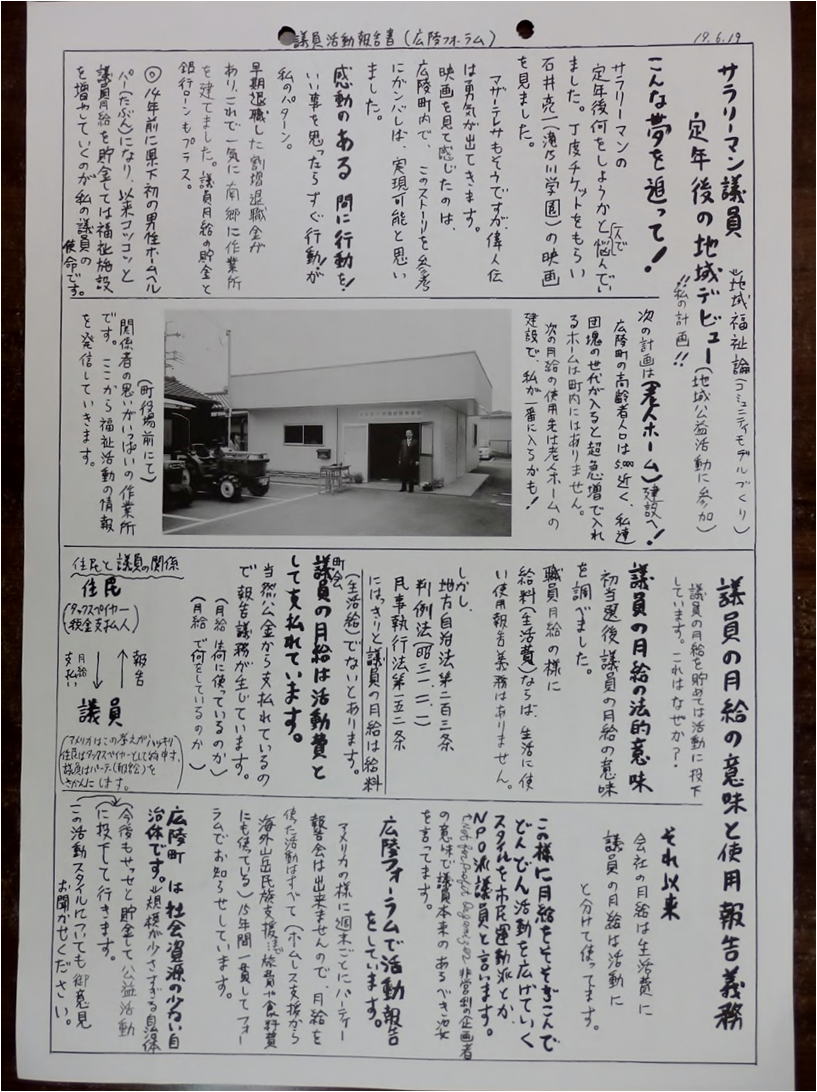 議員活動報告書(広陵フォーラム)
19.6.19
サラリーマン議員
定年後の地域デビュー(地域公益活動に参加)
〃地域福祉論(コミュニティモデルづくり)
!!私の計画!!
こんな夢を追って!
サラリーマンの
定年後何をしようかと一人で悩んでい
ました。丁度チケットをもらい
石井亮一(滝乃川学園)の映画
を見ました。
マザーテレサもそうですが、偉人伝
は勇気が出てきます。
映画を見て感じたのは、
広陵町内で、このストーリを参考
にガンバレば、実現可能と思い
ました。
感動のある間に行動を!
いい事を思ったらすぐ行動!が
私のパターン。
早期退職した割増退職金が
あり、これで一気に南郷に作業所
を建てました。議員月給の貯金と
銀行ローンもプラス。
◎14年前に県下初の男性ホームヘル
パー(たぶん)になり、以来コツコツと
議員月給を貯金しては福祉施設
を増やしていくのが私の議員の
使命です。
次の計画は(老人ホーム)建設へ!
広陵町の高齢者人口は5,000近く、私達
団塊の世代が入ると超急増で入れ
るホームは町内にはありません。
次の月給の使用先は老人ホームの
建設で、私が一番に入るかも!
(町役場前にて)
関係者の思いがいっぱいの作業所
です。ここから福祉活動の情報
を発信していきます。
議員の月給の意味と使用報告義務
議員の月給を貯めては活動に投下
しています。これはなぜか?・
議員の月給の法的意味
初当選後議員の月給の意味
を調べました。
職員月給の様に
給料(生活費)ならば、生活に使
い使用報告義務はありません。
しかし、
地方自治法第二百三条
判例法(昭三一.二.)
民事執行法第一五二条
にはっきりと議員の月給は給料
(生活給)でないとあります。
町会
議員の月給は活動費と
して支払れています。
当然公金から支払れているの
で報告議務が生じています。
(月給は何に使っているのか)
(月給で何をしているのか)
住民と議員の関係
住民
(タックスペイヤー)
(税金支払人)
月給
支払い
報告
議員
(アメリカはこの考えがハッキリ
住民はタックスペイヤーとして
議員はパーティー(報告会)を
さかんにします。)
それ以来
会社の月給は生活費に
議員の月給は活動に
と分けて使ってます。
この様に月給をそそぎこんで
どんどん活動を広げていく
スタイルを市民運動派とか
NPO派議員と言います。
(Not for Profit Organizer 非営利の企画者
の意味で議員本来のあるべき姿
を言ってます。
広陵フォーラムで活動報告
をしています。
アメリカの様に週末ごとにパーティー
報告会は出来ませんので、月給を
使った活動はすべて(ホームレス支援から
海外山岳民族支援など旅費や食料費
にも使っている)15年間一貫してフォー
ラムでお知らせしています。
広陵町は社会資源の少ない自
治体です。〃規模が少さすぎる自治体
今後もせっせと貯金して公益活動
に投下して行きます。
この活動スタイルについても御意見
お聞かせください。